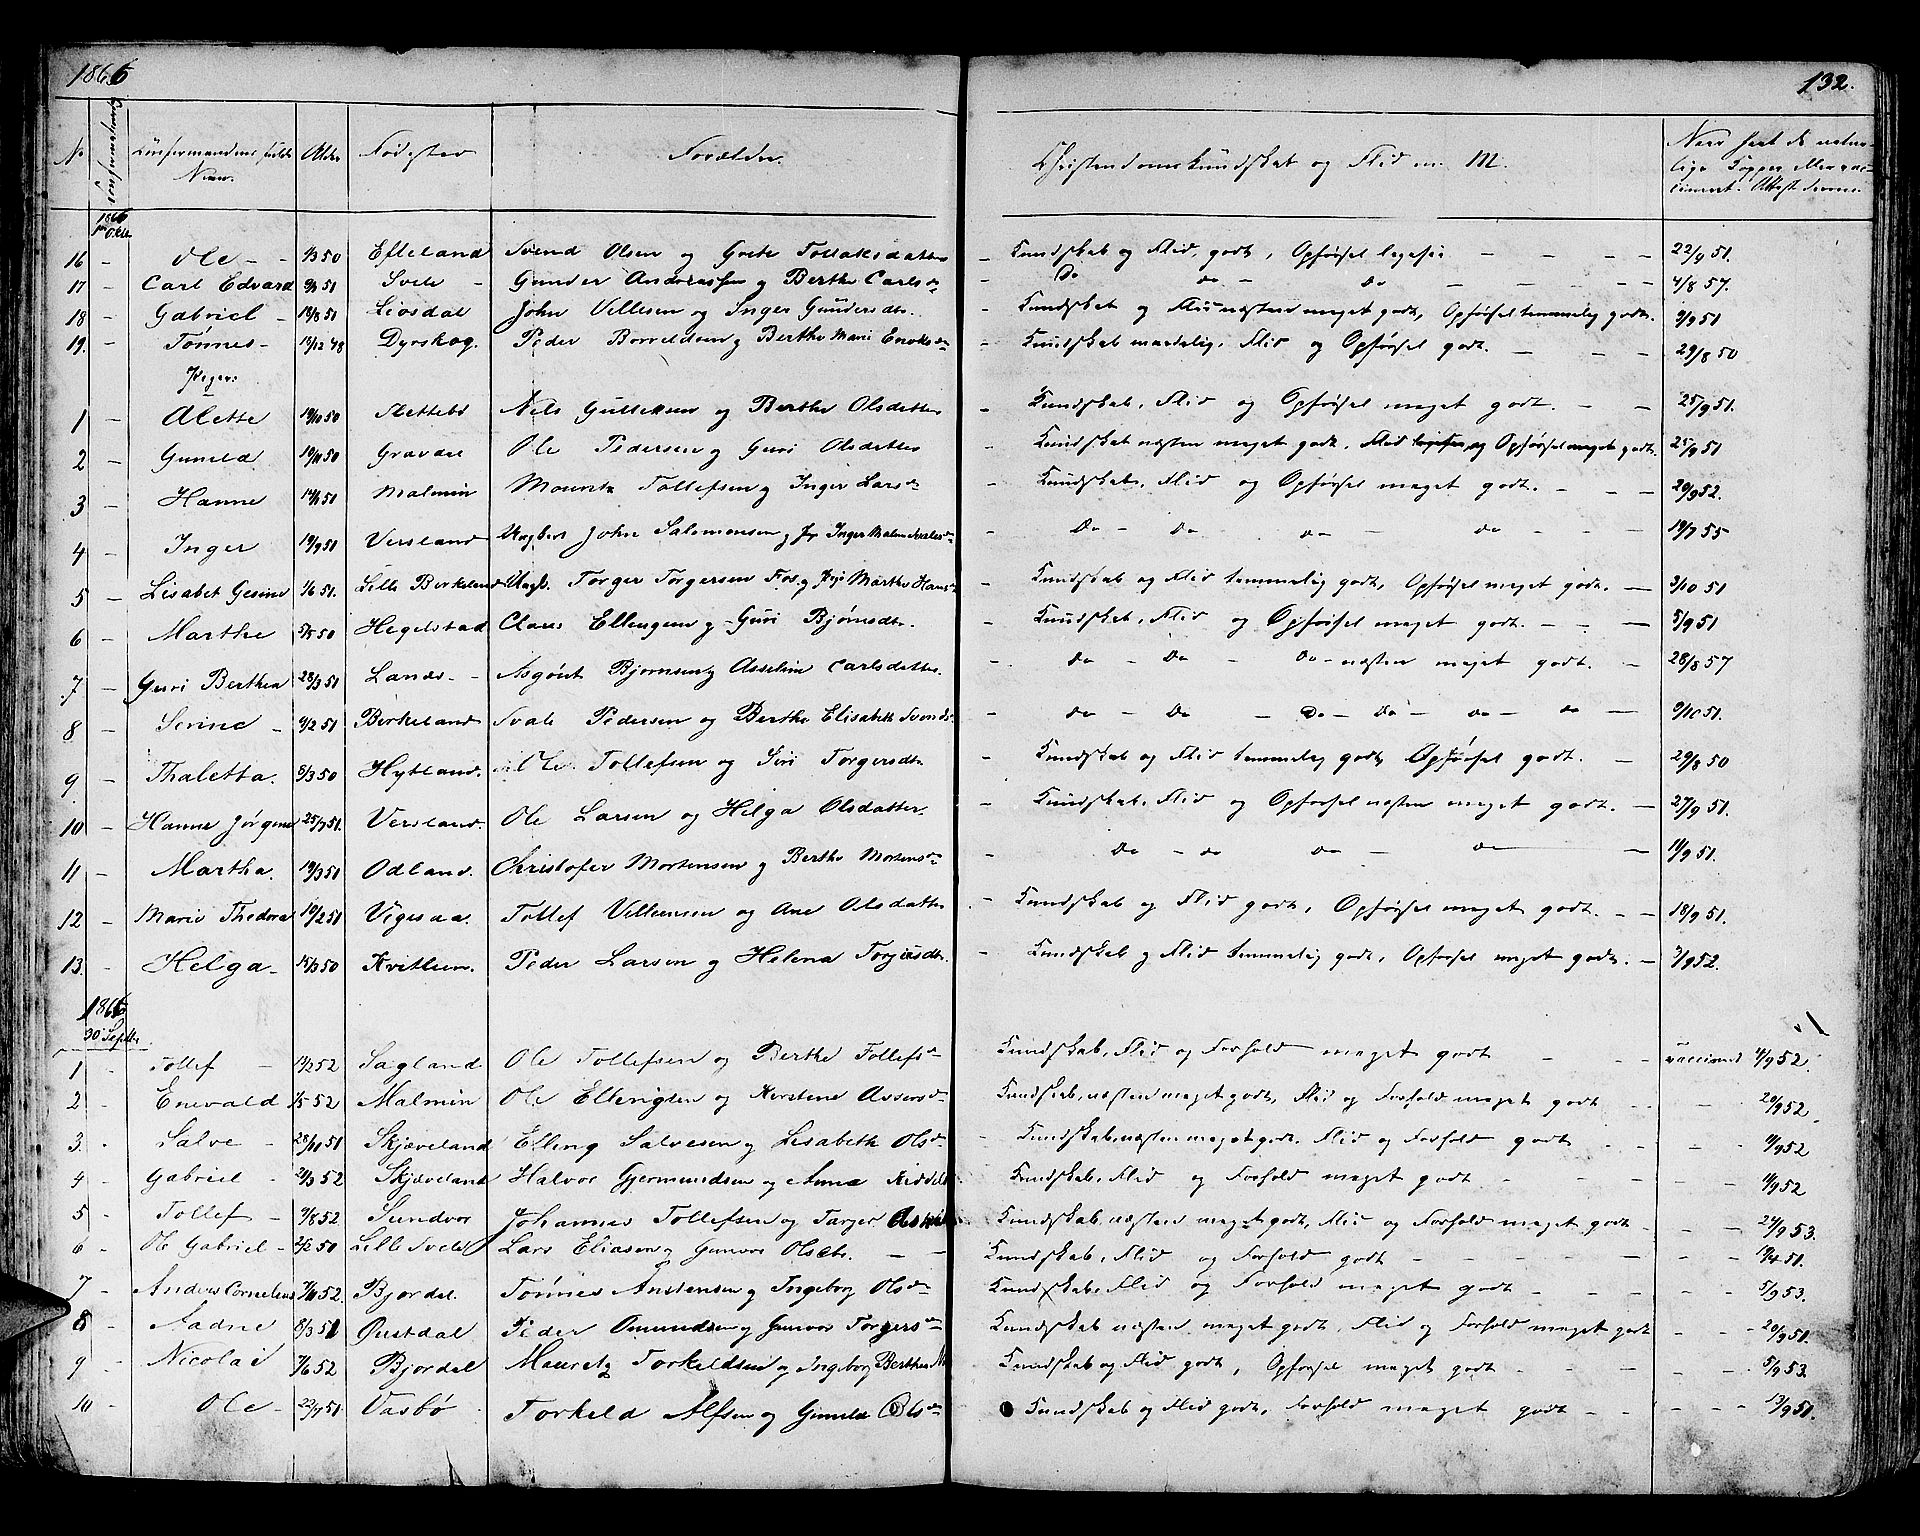 1866 132.
No Confirmationsd Confirmandens fulde Navn. Alder Fødested Forældre. Christendomskundskab og Flid m. M. Naar havt de naturlige Kopper eller vaccineret. Attest derom.
1866 Oktb
16 - Ole - 50 Efteland Svend Olsen og Goete Tollaksdatter - Kundskab og Flid, godt, Opførsel ligesaa - - - - 22/4 51.
17 - Carl Edvard 51 Svele - Gunder Andreassen og Berthe Carlsdr Do do - Do - - - - 4/8 57.
18 - Gabriel - 18/8 51 Livsdal John Villesen og Inger Gundersdtr. - Kundskab og Flid næsten meget godt, Opførsel temmelig godt. 9/9 51
19. - Tønnes - 12 48 Dyrskog. Peder Borreldsen og Berthe Marie Enoksdr - Kundskab maadelig, Flid og Opførsel godt. - - - 29/8 50
Piger:
1 - Alette 19/10 50 Slettebö Nels Gulleksen og Berthe Olsdatter - Kundskab, Flid og Opførsel meget godt. - - - 25/9 51.
2 - Guneld 19/11 50 Gravdal Ole Pedersen og Guri Olsdatter - Kundskab næsten meget godt, Flid og Opførsel meget godt. 25/9 51
3 - Hanne 51 Malmin Mouritz Tollefsen og Inger Larsdr - Kundskab, Flid og Opførsel meget godt. - - - 20/9 52.
4 - Inger 19/9 51 Versland Ungkarl John Salomonsen og Inger Malene - Do - Do - do - do - - - 19/7 55
5 - Lisabet Gesine 1/6 51. Lille Birkeland Ungk. Torger Torgersen Fos og Pige Marthe Hansdr - Kundskab og Flid temmelig godt, Opførsel meget godt. - 3/10 51
6 - Marthe 50 Hegelstad Claus Ellengsen og Guri Bjørnsdtr. - Kundskab, Flid og Opførsel meget godt. - - - 5/9 51
7 - Guri Berthea 28/3 51 Lands - Asgout Bjørnsen og Asseline Carlsdatter. - do - Do - Do - næsten meget godt. - 28/8 57
8 - Serine - 2 51 Birkeland Svale Pedersen og Berthe Elisabeth Svends - do - Do - Do - Do - do - do - 9/10 51.
9 - Thaletta. 8/3 50 Hytland. Ole Tollefsen og Siri Torgersdtr - Kundskab og Flid temmelig godt, Opførsel godt. - 29/8 50
10 - Hanne Jørgine 25/3 51. Versland. Ole Larsen og Helga Olsdatter - Kundskab, Flid og Opførsel næsten meget godt. - 27/9 51.
11 - Martha. 19/3 51 Odland. Christofer Mortensen og Berthe Mortensdr - do - do do - do - 11/9 51.
12 - Marie Thedora 19/2 51 Vigesaa. Tollef Villumsen og Ane Olsdatter - Kundskab og Flid godt, Opførsel meget godt. - - 18/9 51.
13. - Helga - 50 Kvitlem. Peder Larsen og Helena Torjusdtr. - Kundskab og Flid temmelig godt, Opførsel meget godt. - 9 52.
1866
30 Septbr.
1 - Tollef - 2 52 Sagland Ole Tollefsen og Berthe Tollefsdr Kundskab, Flid og Forhold meget godt - - vaccineret 11/9 52.
2 - Enevald 1/5 52 Malmin Ole Ellingsen og Kerstene Assersdr Kundskab, næsten meget godt, Flid og Forhold meget godt - - - 20/9 52
3. - Salve - 28/11 51 Skjæveland Elling Salvesen og Lisabeth Olsdr - Kundskab, næsten meget godt, Flid og Forhold godt - - - - 11/9 52
4 - Gabriel - 3 52 Skjæveland Halvor Gjermundsen og Anna - Kundskab, Flid og Forhold meget godt - - - - - 11/9 52
5 - Tollef - 8 52 Sundvor Johannes Tollefsen og Torger Kundskab, næsten meget godt, Flid og Forhold meget godt - - - 27/9 53.
6 - Ole Gabriel - 2/2 50 Lille Svele Lars Eliasen og Gunvor Olsdtr. - - Kundskab, Flid og Forhold godt - - - - - - 4 51.
7 - Anders Cornelius 7/11 52. Bjordal. Tønnes Anstensen og Ingeborg Olsdr - Kundskab, Flid og Forhold meget godt - - - - - 5/9 53.
8 - Aadne 8/3 51 Øustdal Peder Omundsen og Gunvor Torgersdr - Kundskab næsten meget godt, Flid og Forhold meget godt - - 20/9 51.
9 - Nicolai 7/6 52 Bjordal Mouretz Torkeldsen og Ingeborg Berthea - Kundskab og Flid godt, Opførsel meget godt - - - - - 5/9 53.
10 - Ole - 22/7 51 Vasbø Torkeld Alfsen og Guneld Olsdr Kundskab og Flid godt, Forhold meget godt - - - - - 13/9 51.